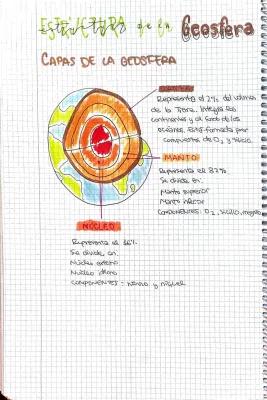 ESTRUCTURA de la Geosfera
CAPAS DE LA GEOSFERA
Representa el 2% del volumen
de la Tierra. Integra los
continentes y el fondo de los
océanos. Está formada por
compuestos de O2 y silicio.
MANTO
Representa el 82%
Se divide en:
Manto superior
Manto inferior
COMPONENTES: O2, silicio,
NÚCLEO
Representa el 16%
Se divide en:
Núcleo externo
Núcleo interno
COMPONENTES: hierro y níquel